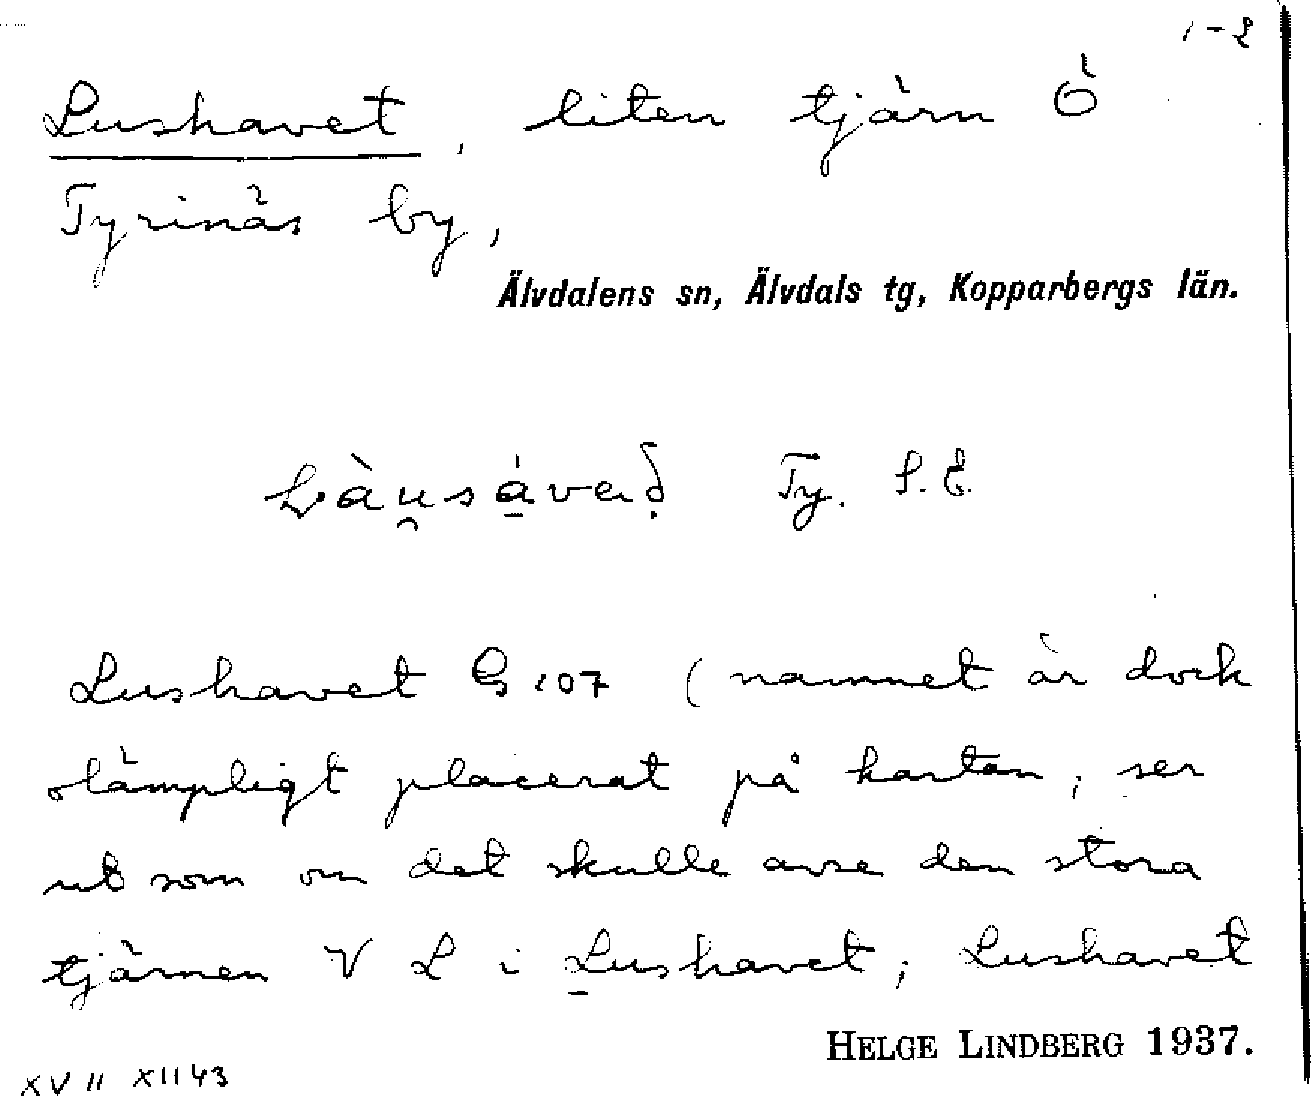 1-2
Lushavet, liten tjärn Ö
Tyrinäs by,
Älvdalens sn, Älvdals tg, Kopparbergs län.
Ty. S.E.
Lushavet G 107 (namnet är dock
olämpligt placerat på kartan; ser
ut som om det skulle avse den stora
tjärnen V L i Lushavet; Lushavet
HELGE LINDBERG 1937.
XV II XII 43